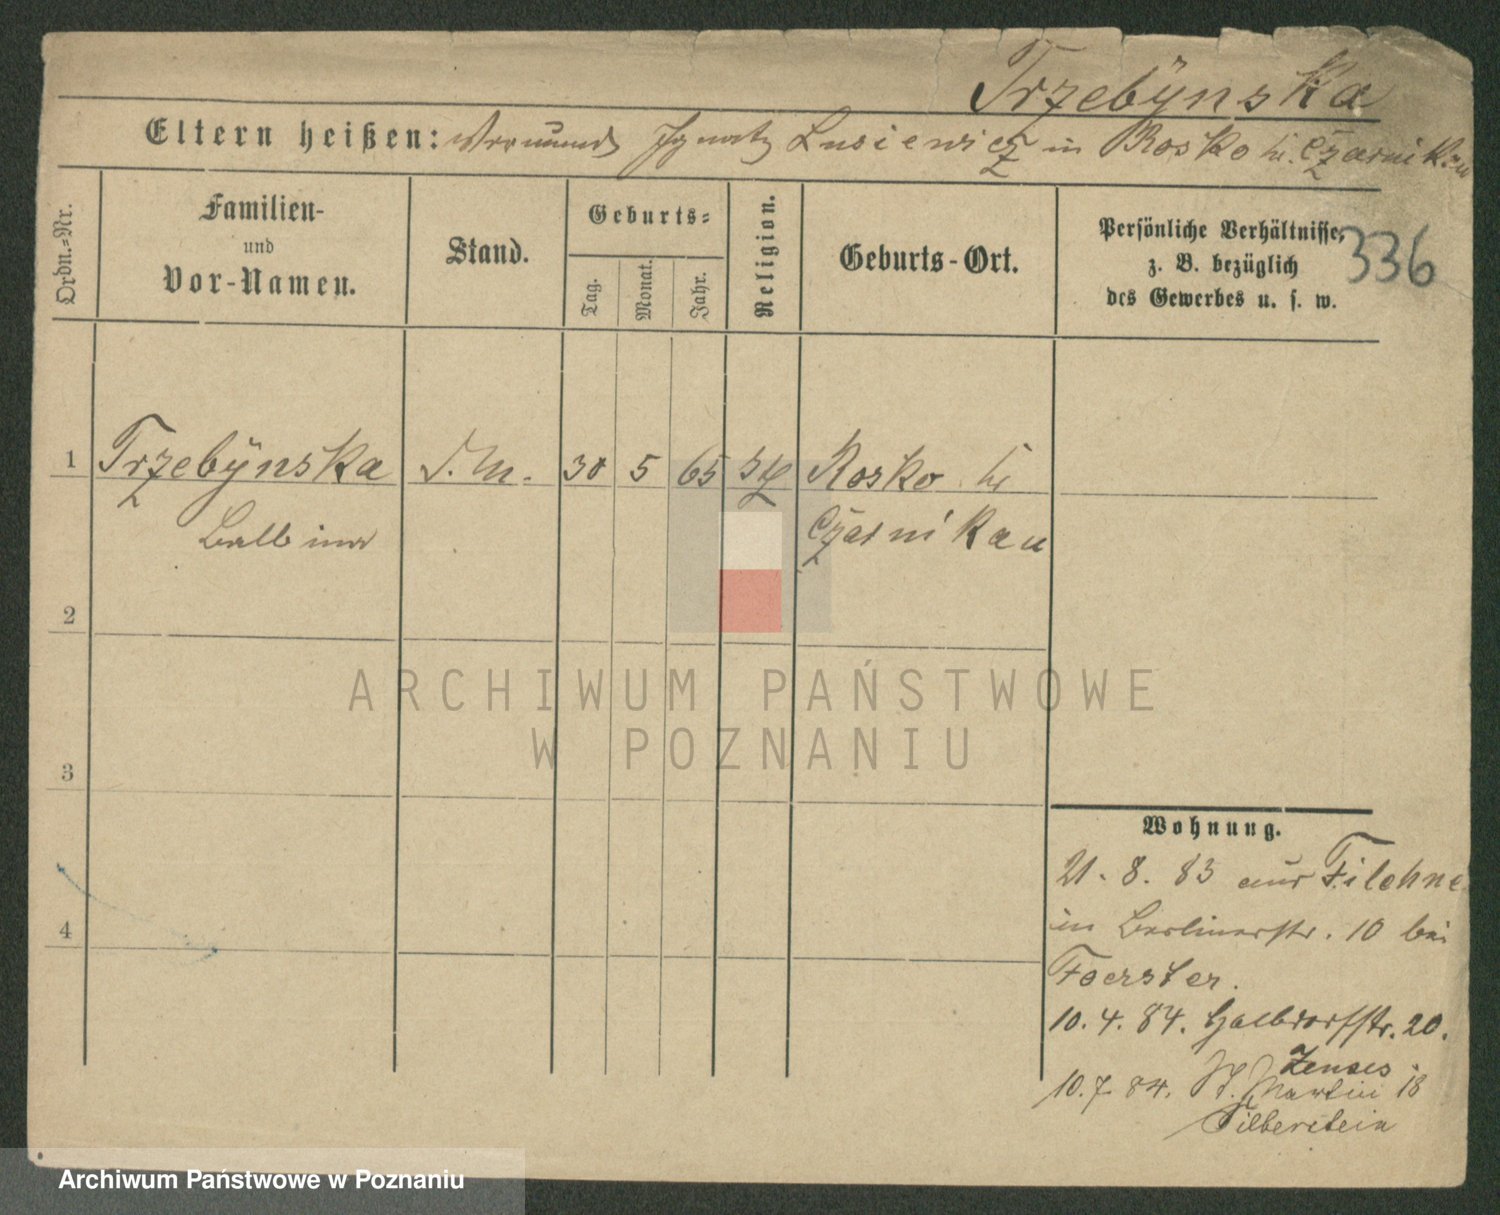 Trzebÿnska
Eltern heißen: Vormund Ignatz Lusiewicz in Rosko bei Czarnikau
336
Ordn.=Nr.
Familien-
und
Vor-Namen.
Stand.
Geburts=
Tag.
Monat.
Jahr.
Religion.
Geburts-Ort.
Persönliche Verhältnisse,
z. B. bezüglich
des Gewerbes u. s. w.
1 Trzebÿnska 30 5 65 Rosko bei
Balbina Czarnikau
2
3
4
Wohnung.
21. 8. 83 aus Filehne
in Berlinerstr. 10 bei
Foerster.
10. 4. 84. Halbdorfstr. 20.
Zenses
10. 7. 84. St. Martin 18
Silberstein
ARCHIWUM PAŃSTWOWE
W POZNANIU
Archiwum Państwowe w Poznaniu